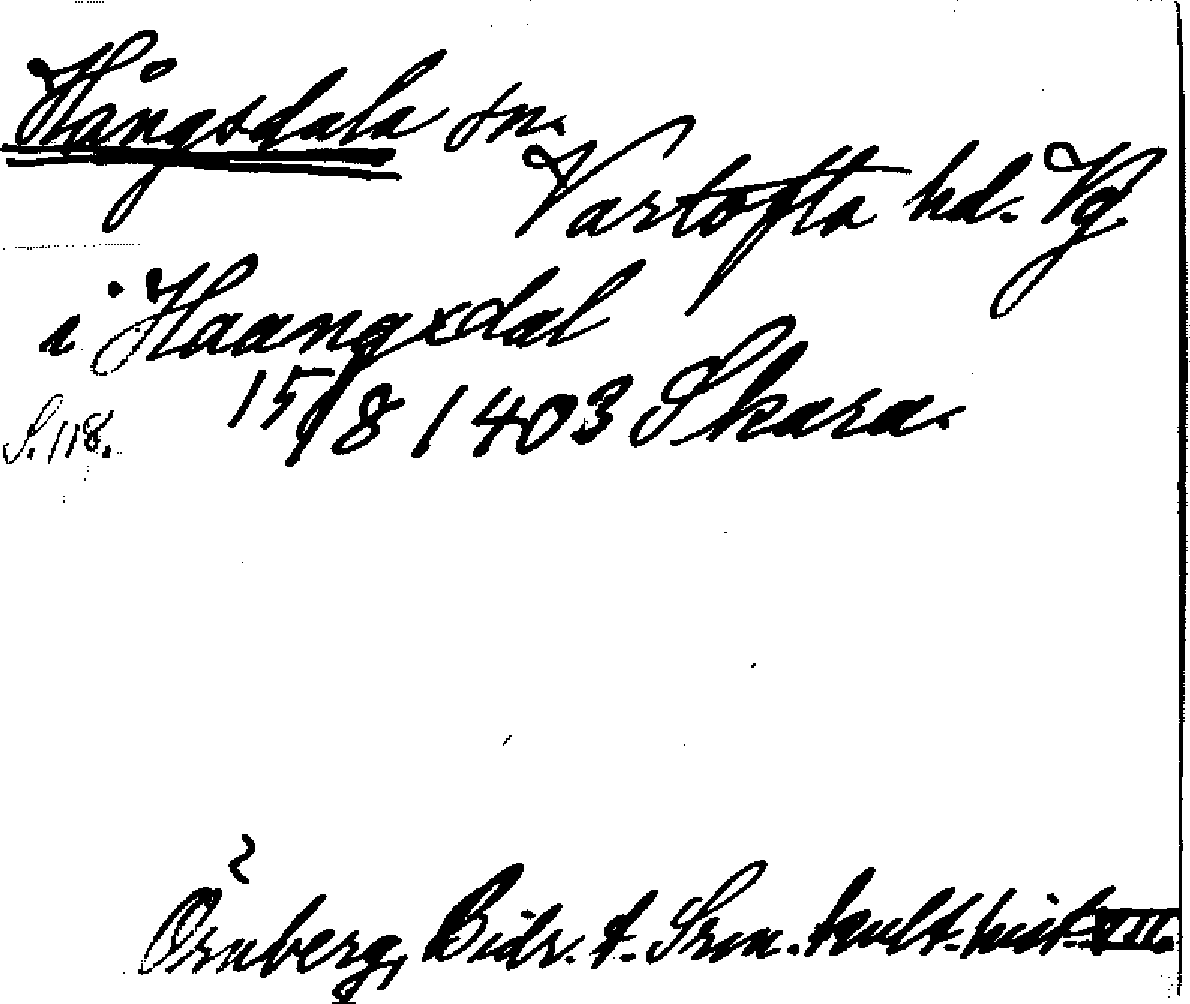 Hångsdala sn.
Vartofta hd. Vg.
i Haangxdal
15/8 1403 Skara.
S. 118.
Örnberg, Bidr. t. Srm. kult. hist. VII.